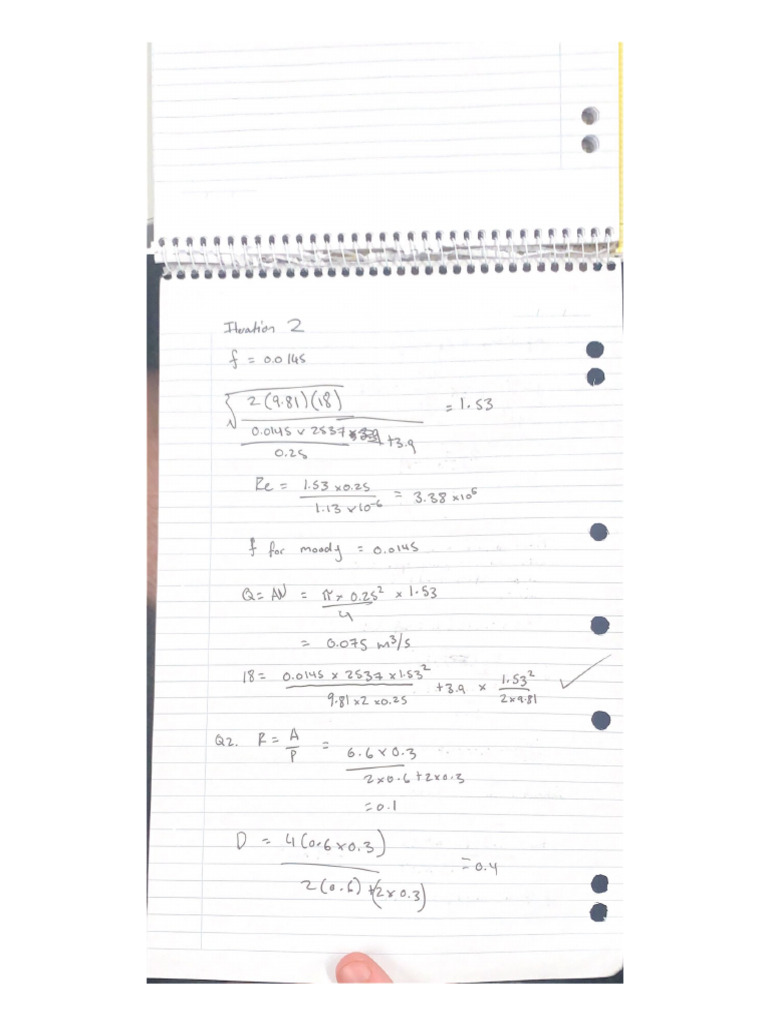 Iteration 2
f = 0.0145
√ 2(9.81)(18) / (0.0145 × 2537 / 0.25 + 3.9) = 1.53
Re = 1.53 × 0.25 / 1.13 × 10^-6 = 3.38 × 10^6
f for moody = 0.0145
Q = AV = π × 0.25² / 4 × 1.53
= 0.075 m³/s
18 = 0.0145 × 2537 × 1.53² / 9.81 × 2 × 0.25 + 3.9 × 1.53² / 2×9.81 ✓
Q2. R = A / P = 6.6 × 0.3 / 2×0.6 + 2×0.3
= 0.1
D = 4(0.6 × 0.3) / 2(0.6) + (2 × 0.3) = 0.4